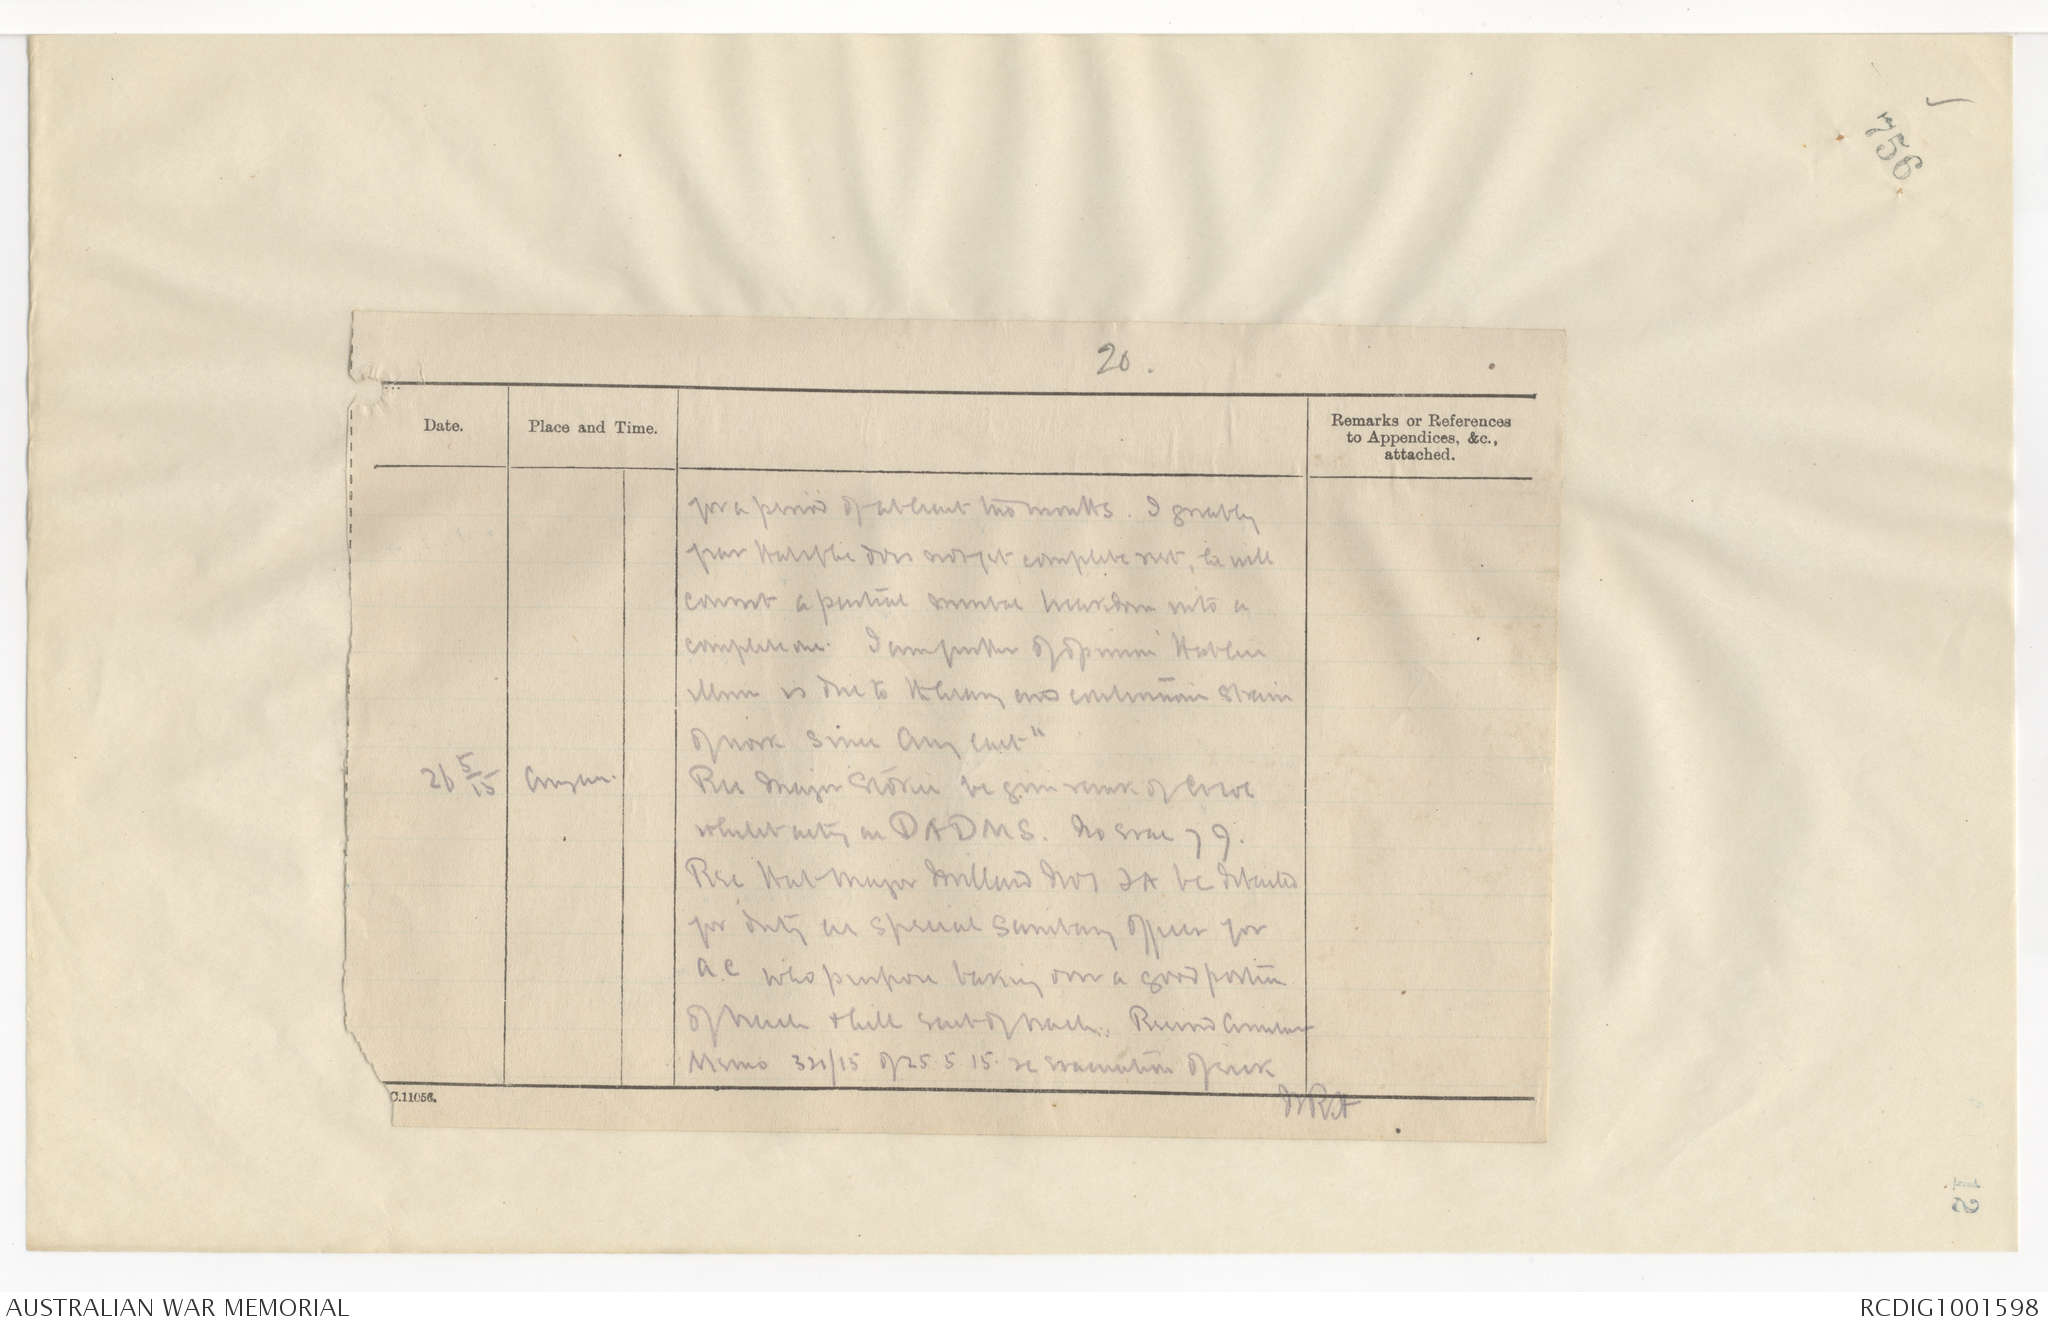 756
20.
Date.
Place and Time.
Remarks or References
to Appendices, &c.,
attached.
for a period of at least two months. I greatly
fear that if he does not get complete rest, he will
convert a partial mental breakdown into a
complete one. I am further of opinion that his
illness is due to the heavy and continuous strain
of work since Aug last"
26 5/15
Rec Major Stokes be given rank of Lt Col
whilst acting as DADMS.
Rec that Major Millard No 1 FA be detailed
for duty as special sanitary officer for
A.C who purpose taking over a good portion
of beach & hill East of beach. Received
Memo 321/15 of 25.5.15. re evacuation of sick
C.11056.
12
AUSTRALIAN WAR MEMORIAL
RCDIG1001598